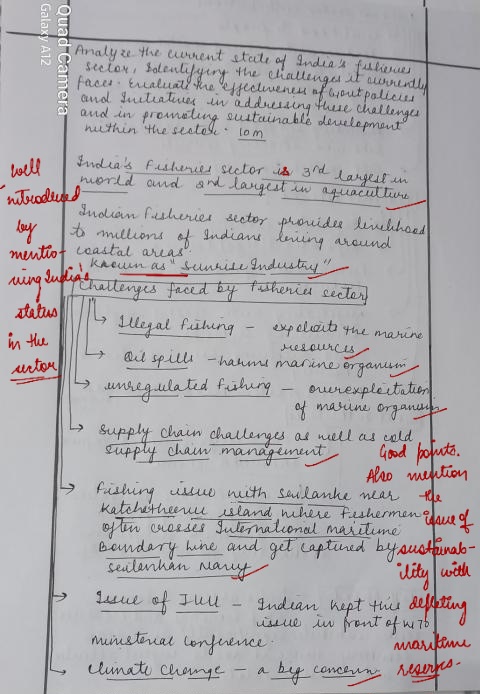 Quad Camera
Galaxy A12
Analyze the current state of India's fisheries
sector, Identifying the challenges it currently
faces. Evaluate the effectiveness of Govt policies
and Initiatives in addressing these challenges
and in promoting sustainable development
within the sector. 10m
India's Fisheries sector is 3rd largest in
world and 2nd largest in aquaculture
Indian Fisheries sector provides livelihood
to millions of Indians living around
coastal areas.
known as "Sunrise Industry"
well
introduced
by
mentio-
ning India's
status
in the
sector
Challenges faced by fisheries sector
Illegal Fishing - exploits the marine
resources
Oil spills - harms marine organism
unregulated fishing - overexploitation
of marine organism
Supply chain challenges as well as cold
supply chain management
Fishing issue with Srilanke near
Katchetheevu island where Fishermen
often crosses International maritime
Boundary Line and get captured by
Srilankan navy
Good points.
Also mention
the
issue of
sustainab-
ility with
depleting
maritime
reserves.
Issue of IUU - Indian kept this
issue in front of WTO
ministerial conference.
Climate change - a big concern